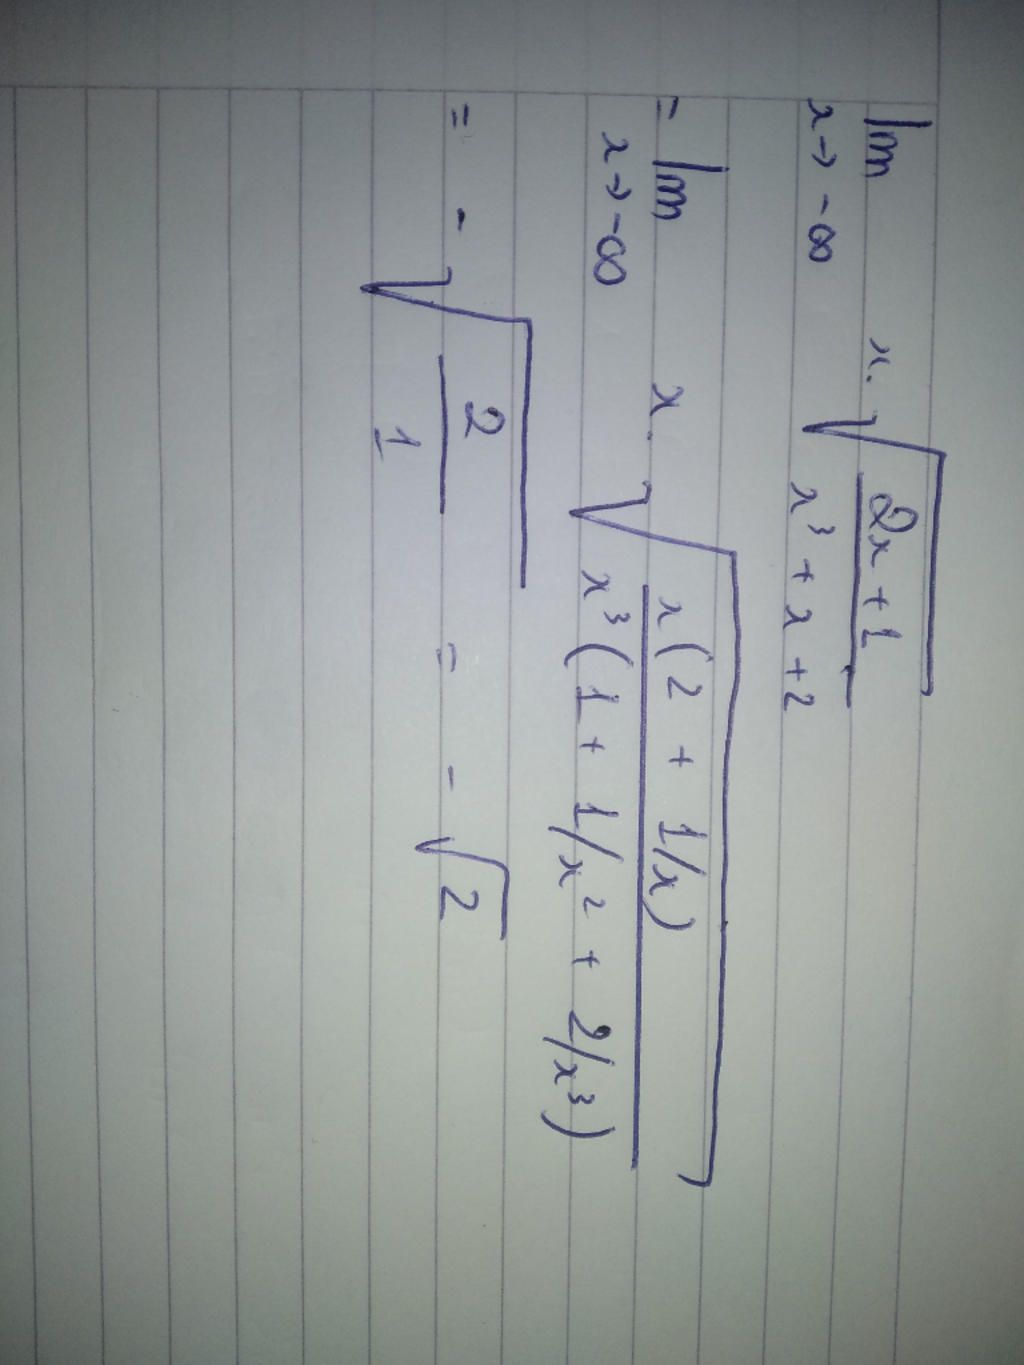 lim x. √(2x+1 / x³ + x + 2)
x→ -∞
= lim x. √(x(2 + 1/x) / x³(1 + 1/x² + 2/x³))
x→ -∞
= - √(2 / 1) = - √2